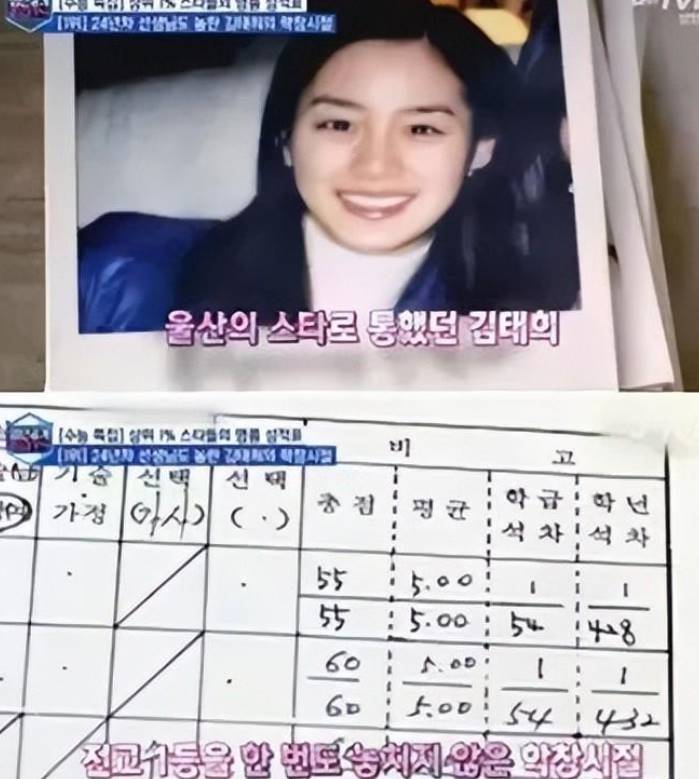 [수능 특집] 상위 1% 스타들의 명품 성적표
[1위] 24년차 선생님도 놀란 김태희의 학창시절
울산의 스타로 통했던 김태희
[수능 특집] 상위 1% 스타들의 명품 성적표
[1위] 24년차 선생님도 놀란 김태희의 학창시절
비 고
기술 선택 선택 총점 평균 학급 학년
가정 (가사) ( . ) 석차 석차
55 5.00 1 1
55 5.00 54 428
60 5.00 1 1
60 5.00 54 432
전교 1등을 한 번도 놓치지 않은 학창시절